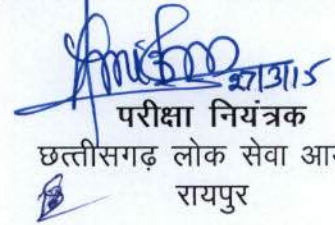 27/3/15
परीक्षा नियंत्रक
छत्तीसगढ़ लोक सेवा आय
रायपुर